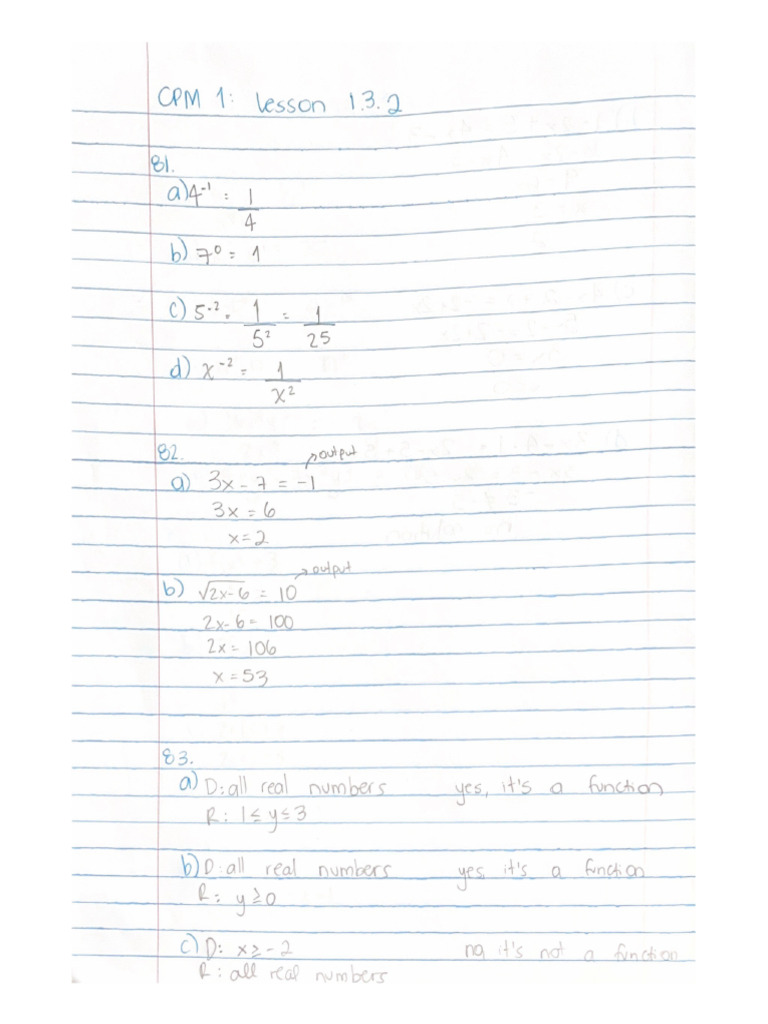 CPM 1: Lesson 1.3.2
81.
a) 4⁻¹ = 1/4
b) 7⁰ = 1
c) 5⁻² = 1/5² = 1/25
d) x⁻² = 1/x²
82.
↗ output
a) 3x - 7 = -1
3x = 6
x = 2
→ output
b) √2x-6 = 10
2x - 6 = 100
2x = 106
x = 53
83.
a) D: all real numbers yes, it's a function
R: 1 ≤ y ≤ 3
b) D: all real numbers yes, it's a function
R: y ≥ 0
c) D: x ≥ -2 no, it's not a function
R: all real numbers